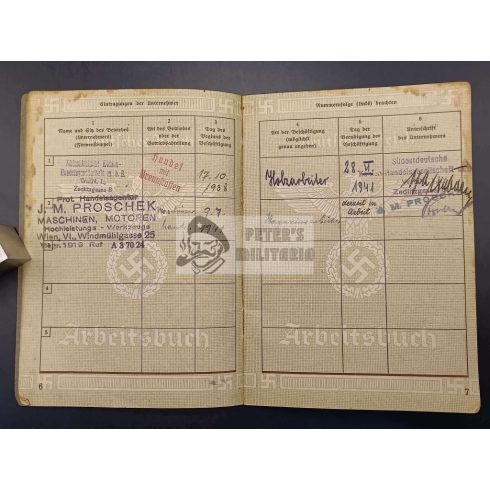 Eintragungen der Unternehmer
1
Name und Sitz des Betriebes
(Unternehmers)
(Firmenstempel)
2
Art des Betriebes
oder der
Betriebsabteilung
3
Tag des
Beginns der
Beschäftigung
1
Handel
mit
17. 10.
1938
2
Prot. Handelsagentur
J. M. PROSCHEK
MASCHINEN, MOTOREN
Hochleistungs - Werkzeuge
Wien, VI., Windmühlgasse 25
1919 Ruf A 37024
9. 7.
1941
3
Arbeitsbuch
6
Nummernfolge (links) beachten
4
Art der Beschäftigung
(möglichst
genau angeben)
5
Tag der
Beendigung der
Beschäftigung
6
Unterschrift
des Unternehmers
Holzarbeiter
28. VI.
1941
Süddeutsche
derzeit in
Arbeit
J. M. PROSCHEK
Arbeitsbuch
7
PETER'S
MILITARIA